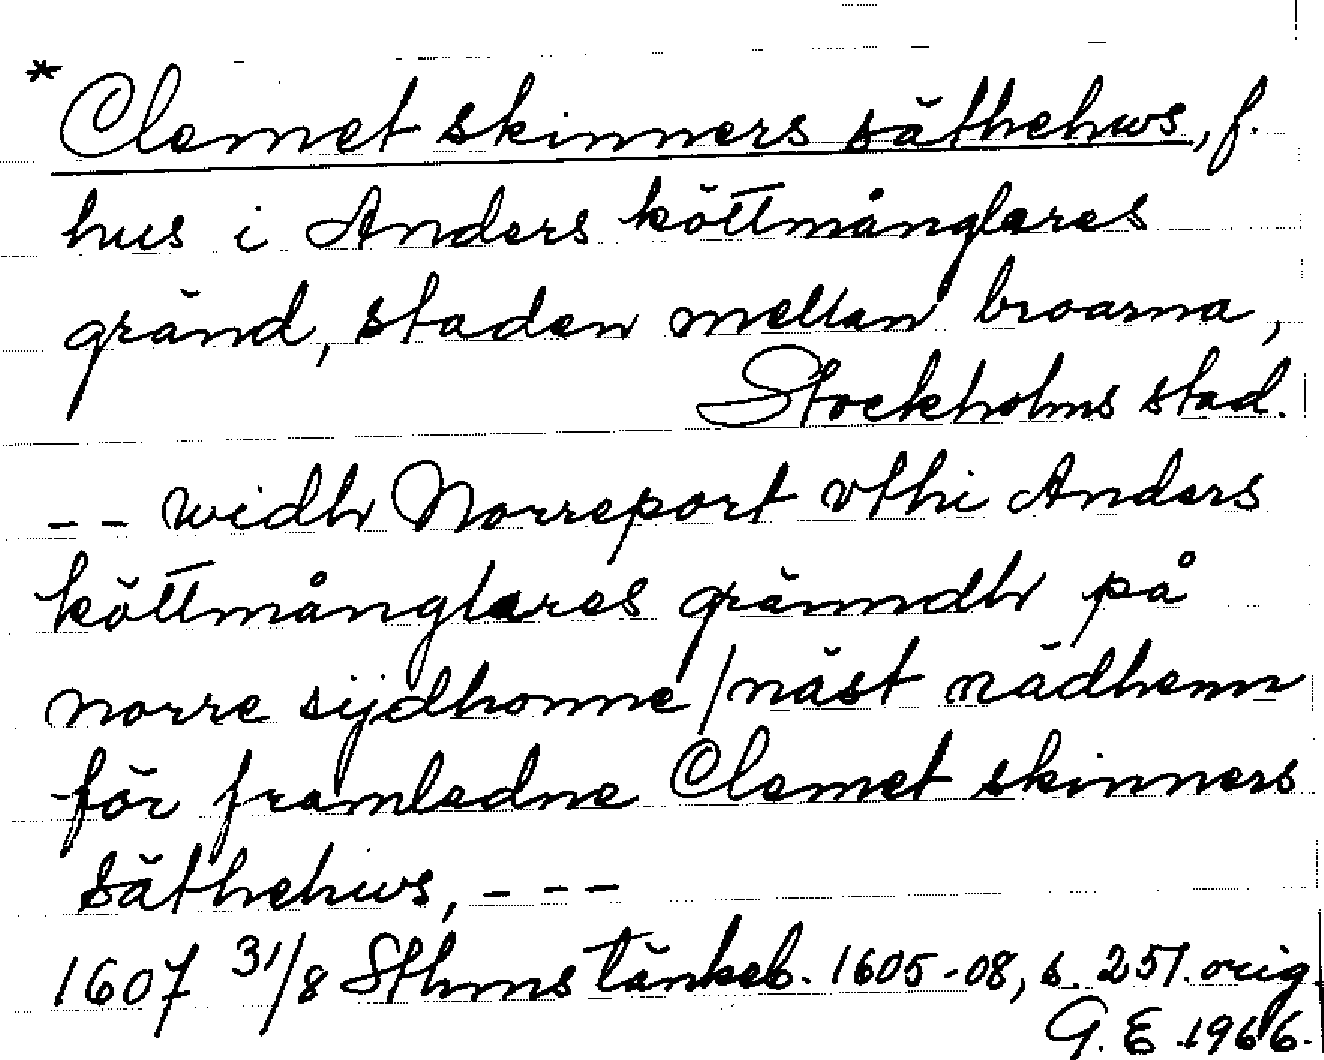 * Clemet skinners säthehws, f.
hus i Anders köttmånglares
gränd, staden mellan broarna,
Stockholms stad.
-- widh Norreport vthi Anders
köttmånglares gränndh på
norre sijdhonne/näst nädhenn
för framledne Clemet skinners
säthehws, ---
1607 31/8 Sthms tänkeb. 1605-08, s. 251. orig.
G. E. 1966.